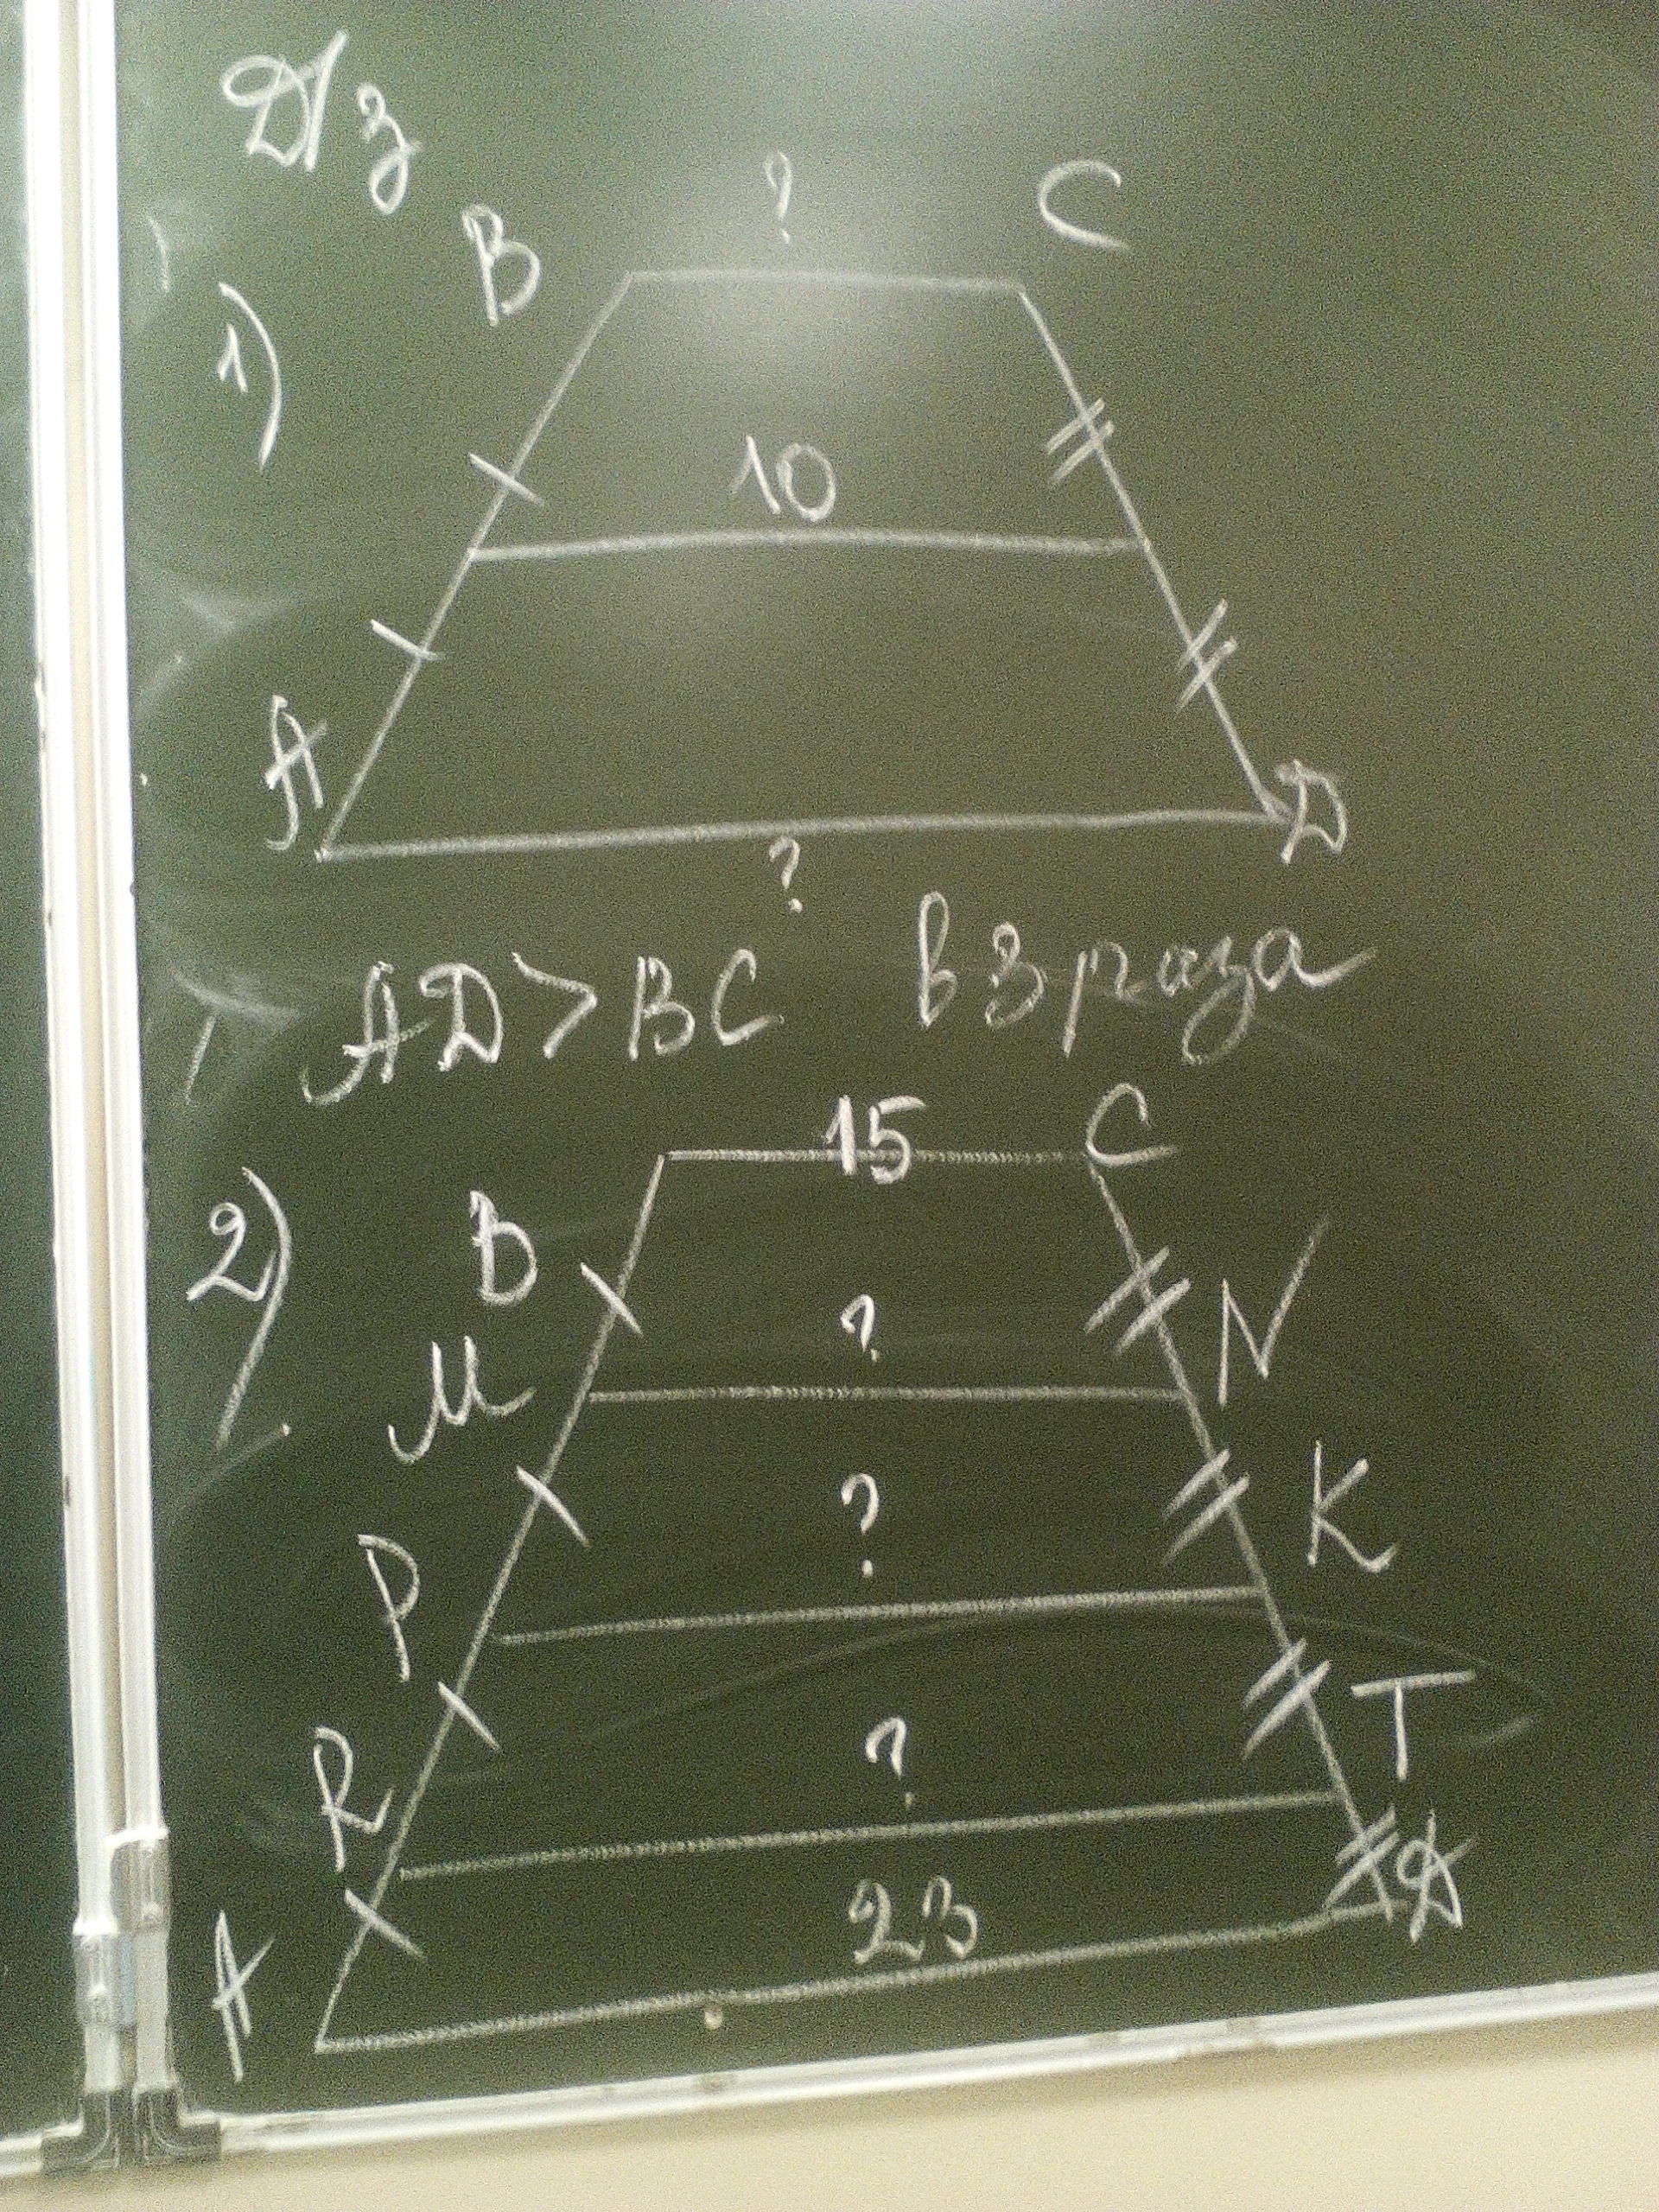 Д/з
1)
B ? C
10
A D
?
AD > BC в 3 раза
2)
15 C
B
? N
M
? K
P
? T
R
23 D
A